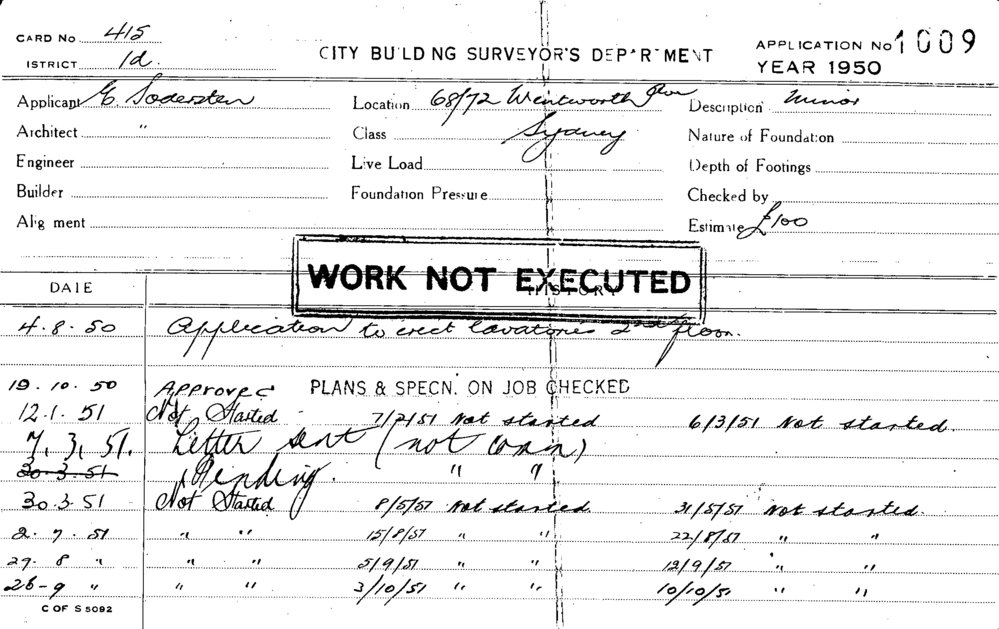 CARD No 415
CITY BUILDING SURVEYOR'S DEPARTMENT
APPLICATION No 1009
ISTRICT 1d.
YEAR 1950
Applicant E Sodersten Location 68/72 Wentworth Description Minor
Architect " Class Sydney Nature of Foundation
Engineer Live Load Depth of Footings
Builder Foundation Pressure Checked by
Alig ment Estimate £100
WORK NOT EXECUTED
DATE HISTORY
4.8.50 Application to erect lavatories 2nd floor.
19.10.50 Approved PLANS & SPECN. ON JOB CHECKED
12.1.51 Not Started 7/2/51 Not started 6/3/51 Not started.
7.3.51. Letter sent (not com)
30.3.51 Pending. " "
30.3.51 Not Started 8/5/51 Not started. 31/5/51 Not started.
2.7.51 " " 15/8/51 " " 22/8/51 " "
29.8 " " " 5/9/51 " " 12/9/51 " "
26-9 " " " 3/10/51 " " 10/10/51 " "
C OF S 5092